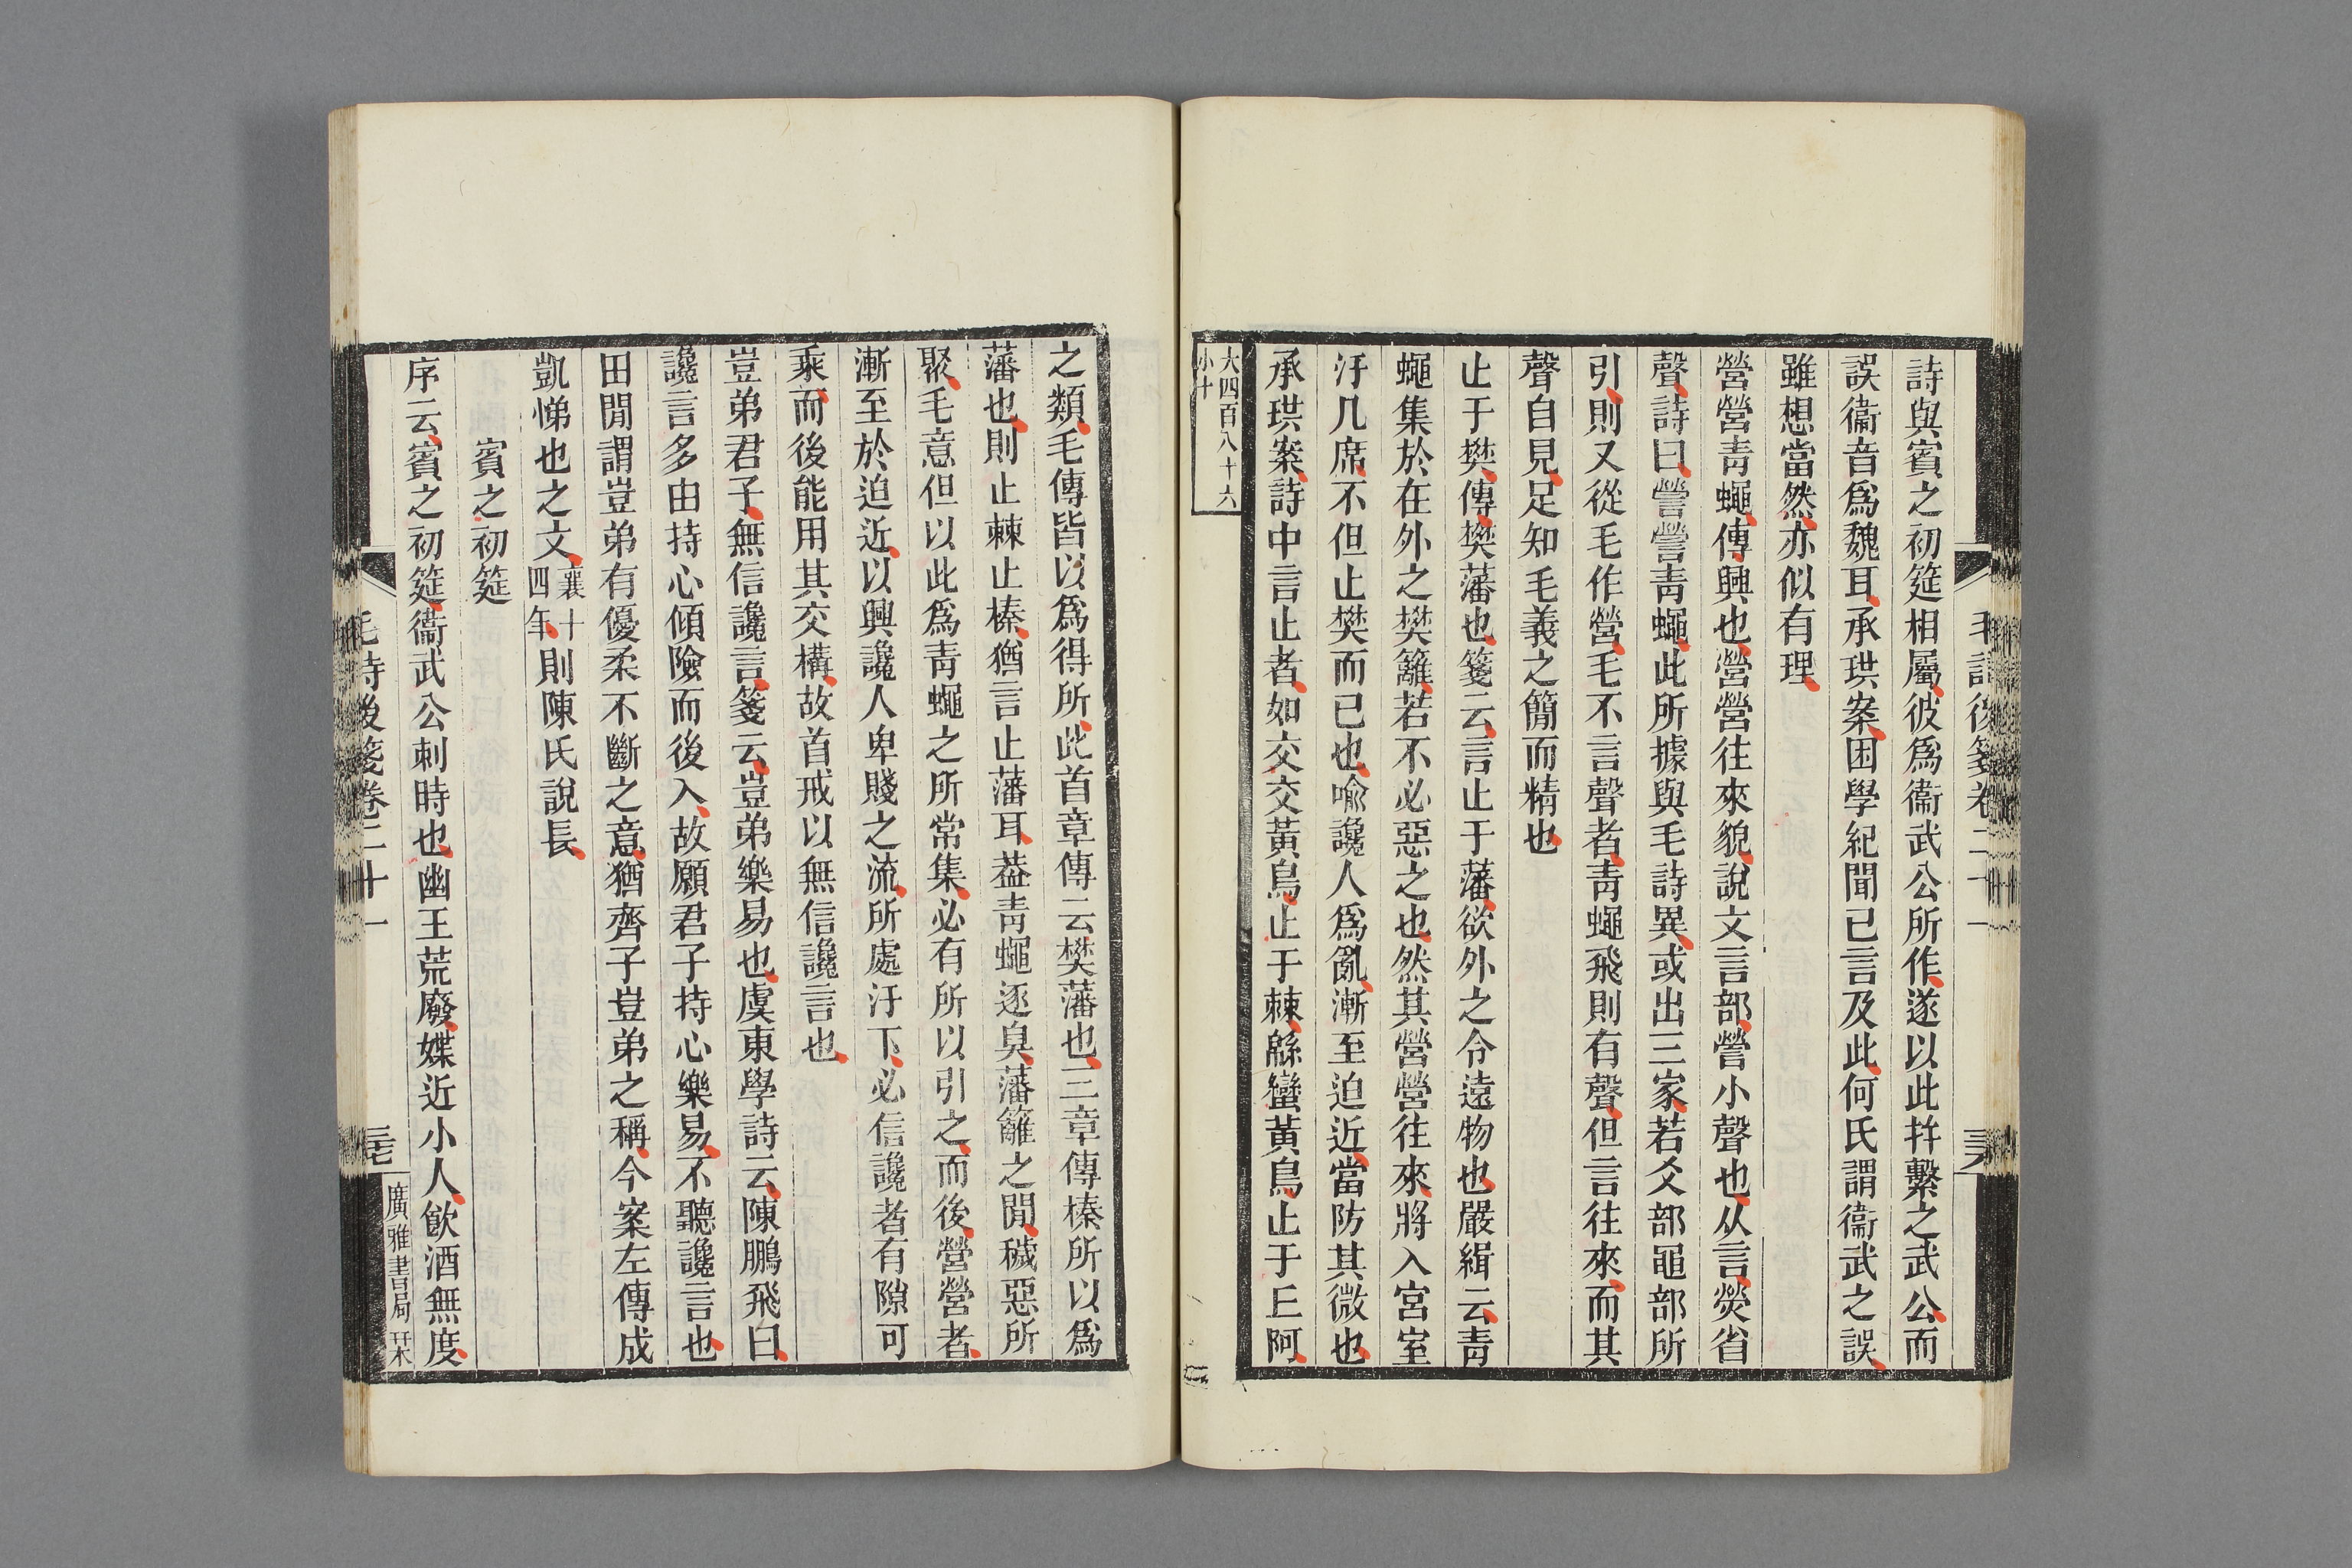 詩與賓之初筵相屬彼爲衞武公所作遂以此幷繫之武公而
誤衞音爲魏耳承珙案困學紀聞已言及此何氏謂衞武之誤
雖想當然亦似有理
營營靑蠅傳興也營營往來貌說文言部謍小聲也从言熒省
聲詩曰謍謍靑蠅此所據與毛詩異或出三家若爻部黽部所
引則又從毛作營毛不言聲者靑蠅飛則有聲但言往來而其
聲自見足知毛義之簡而精也
止于樊傳樊藩也箋云言止于藩欲外之令遠物也嚴緝云靑
蠅集於在外之樊籬若不必惡之也然其營營往來將入宮室
汙几席不但止樊而已也喩讒人爲亂漸至迫近當防其微也
承珙案詩中言止者如交交黃鳥止于棘緜蠻黃鳥止于㐀阿
大四百八十六
小十
之類毛傳皆以爲得所此首章傳云樊藩也三章傳榛所以爲
藩也則止棘止榛猶言止藩耳葢靑蠅逐臭藩籬之閒穢惡所
聚毛意但以此爲靑蠅之所常集必有所以引之而後營營者
漸至於迫近以興讒人卑賤之流所處汙下必信讒者有隙可
乘而後能用其交構故首戒以無信讒言也
豈弟君子無信讒言箋云豈弟樂易也虞東學詩云陳鵬飛曰
讒言多由持心傾險而後入故願君子持心樂易不聽讒言也
田閒謂豈弟有優柔不斷之意猶齊子豈弟之稱今案左傳成
凱悌也之文襄十四年則陳氏說長
賓之初筵
序云賓之初筵衞武公刺時也幽王荒廢媟近小人飮酒無度
毛詩後箋卷二十一
三七
廣雅書局栞